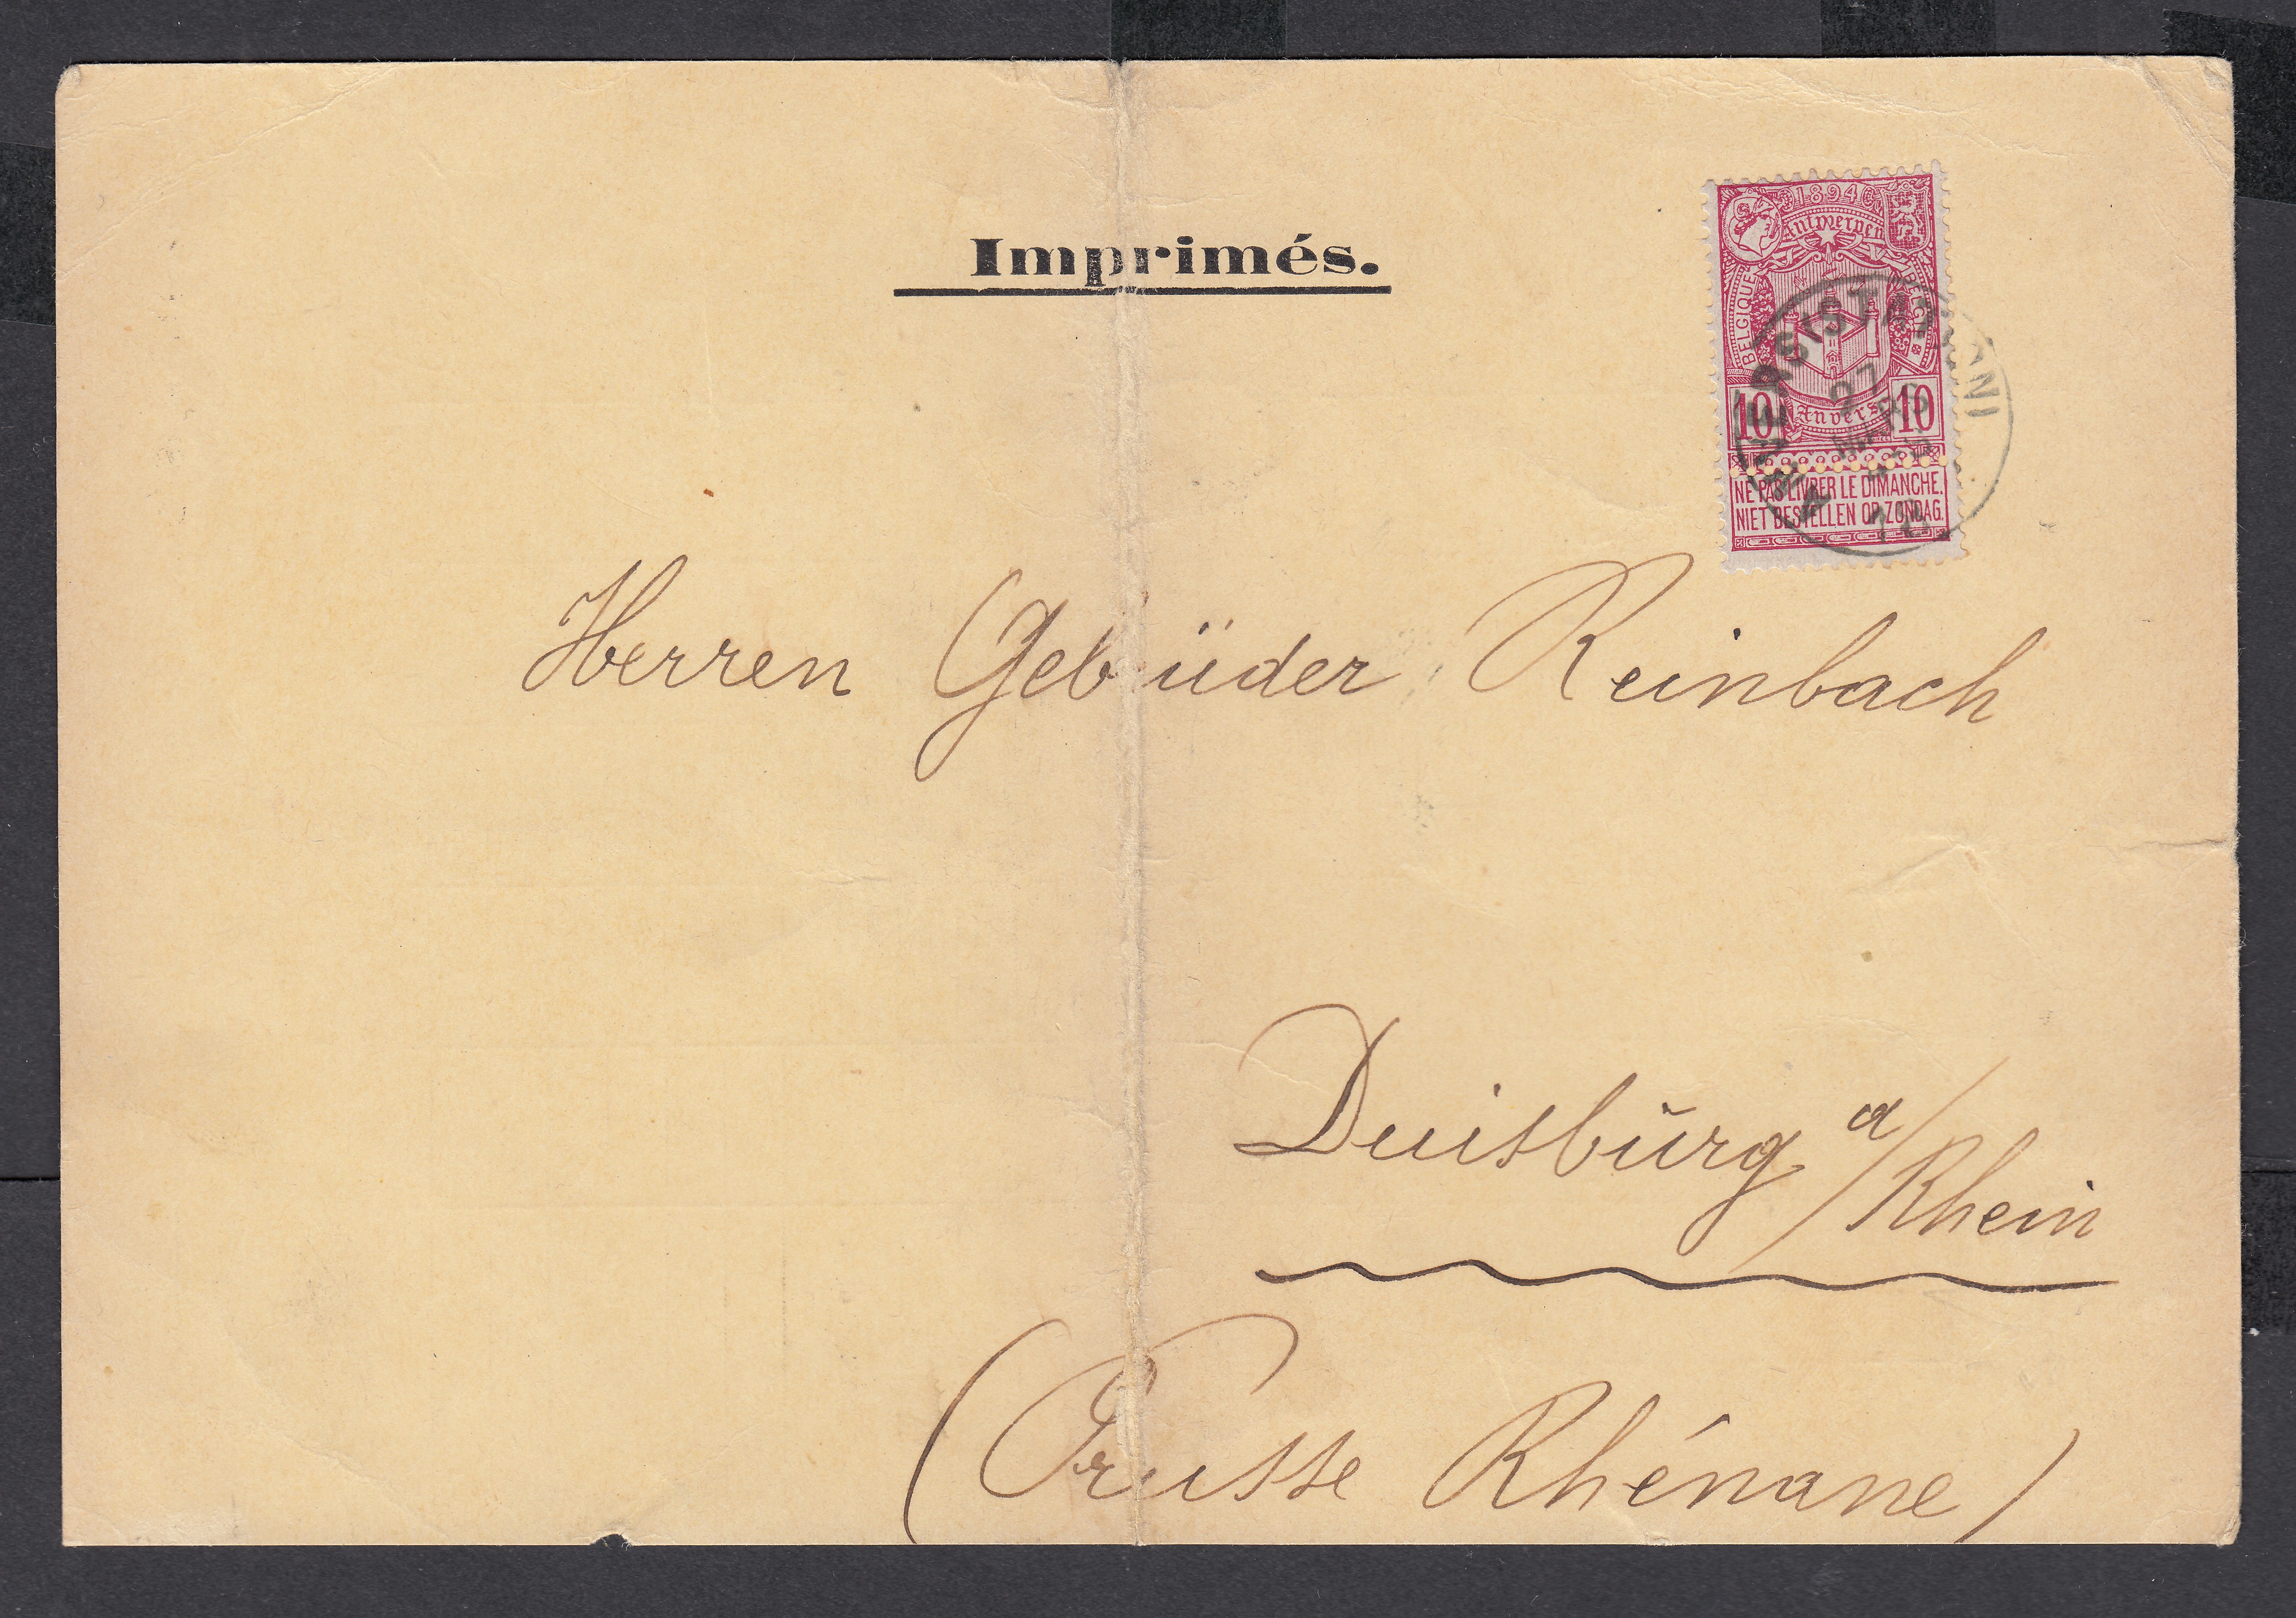 Imprimés.
1894
Antwerpen
BELGIQUE
BELGIE
Anvers
10 10
NE PAS LIVRER LE DIMANCHE.
NIET BESTELLEN OP ZONDAG.
27
Herren Gebrüder Reinbach
Duisburg a/Rhein
(Prusse Rhénane)